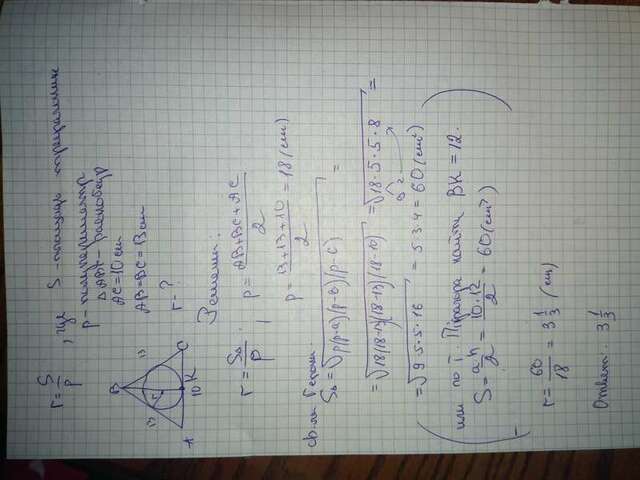 r = S/p , где S - площадь треугольник
p - полупериметр
△ABC - равнобедр
AC = 10 см
AB = BC = 13 см
r - ?
B
13
13
r
A
10
K
C
Решение:
r = S△/p ; p = (AB + BC + AC)/2
p = (13 + 13 + 10)/2 = 18 (cm)
ф-ла Герона
S△ = √(p(p-a)(p-b)(p-c)) =
= √(18(18-13)(18-13)(18-10)) = √(18·5·5·8) =
9·2
= √(9·5·5·16) = 5·3·4 = 60 (cm²)
или по т. Пифагора найти BK = 12.
S = a·h/2 = 10·12/2 = 60 (cm²)
r = 60/18 = 3 1/3 (см)
Ответ: 3 1/3